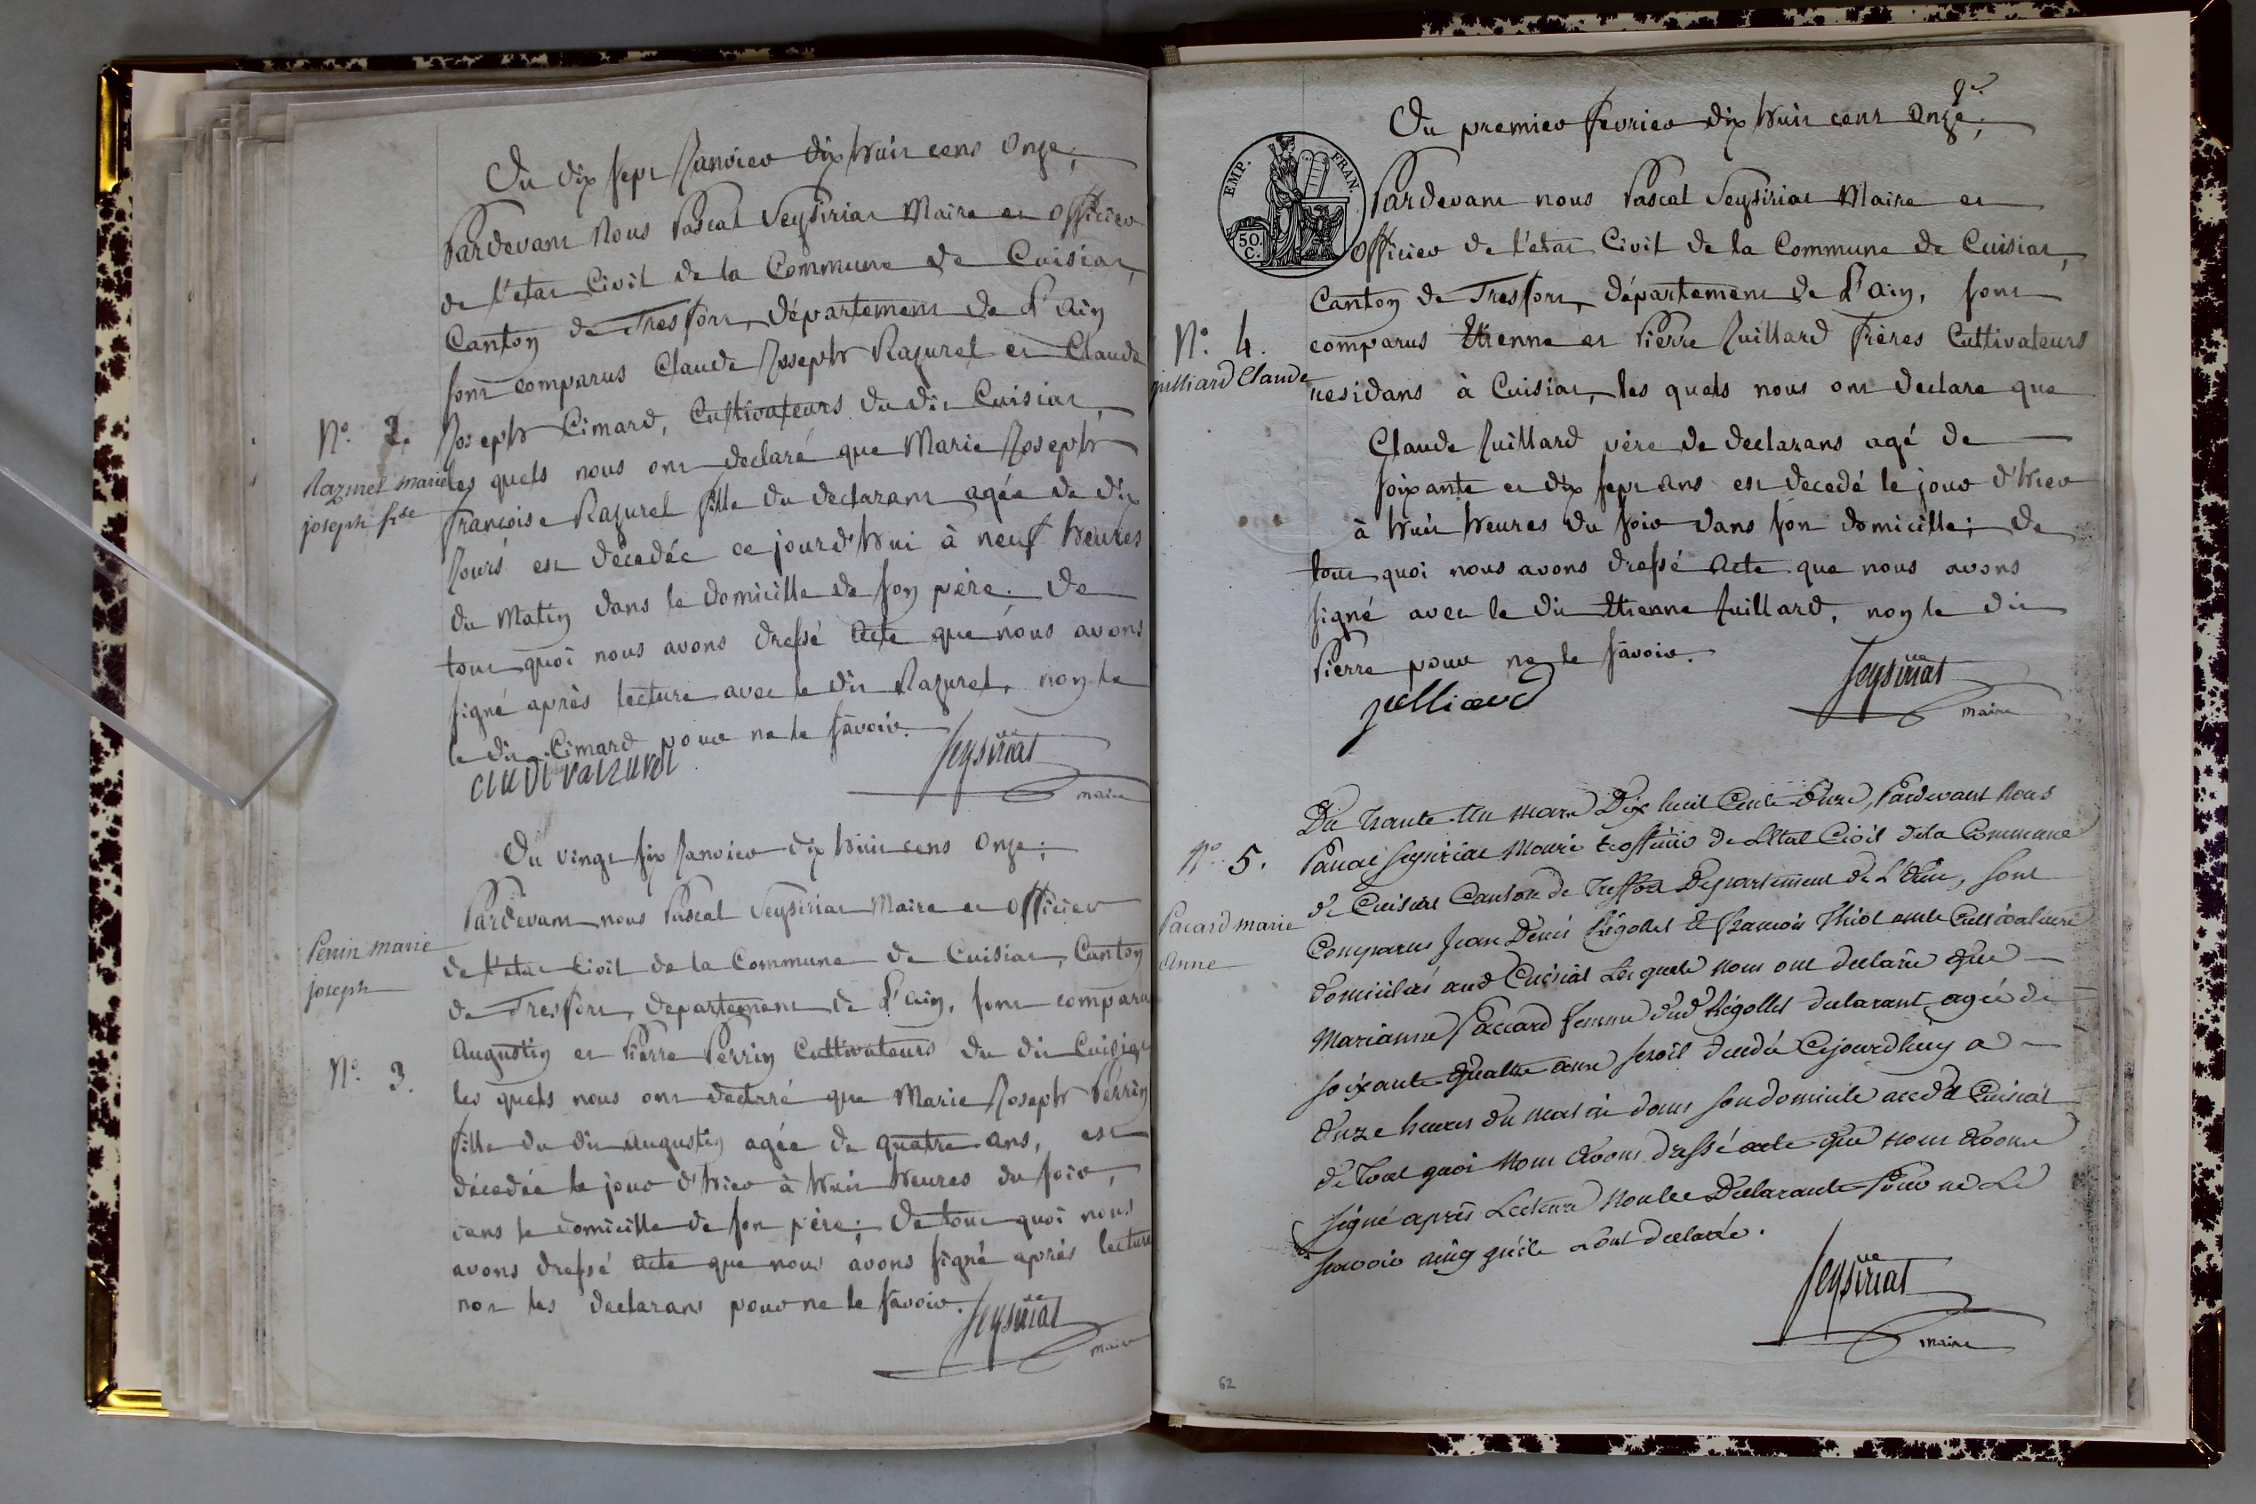 Du dix sept Janvier dix huit cens onze;
Pardevant Nous Pascal Seysiriat Maire et officier
de l'etat Civil de la Commune de Cuisiat,
Canton de Tresfort, département de L'ain
sont comparus Claude Joseph Razurel et Claude
N.o 2. Joseph Cimard, Cultivateurs du dit Cuisiat,
Razurel marie les quels nous ont declaré que Marie Joseph
joseph f.se françoise Razurel fille du declarant agée de dix
Jours est decedée ce jourd'hui à neuf heures
du Matin dans le domicille de son père. De
tout quoi nous avons dressé Acte que nous avons
signé après lecture avec le dit Razurel, non le
le dit Cimard pour ne le savoir.
claudi razurel
Seysiriat
maire
Du vingt six Janvier dix huit cens onze;
Pardevant nous Pascal Seysiriat Maire et officier
Perrin marie
joseph
de l'etat Civil de la Commune de Cuisiat, Canton
de Tresfort, departement de L'ain, sont comparu
N.o 3.
Augustin et Pierre Perrin Cultivateurs du dit Cuisiat
les quels nous ont declaré que Marie Joseph Perrin
fille du dit Augustin agée de quatre ans, est
décedée le jour d'hier à huit heures du soir,
dans le domicille de son père; De tout quoi nous
avons dressé Acte que nous avons signé après lecture
non les declarans pour ne le savoir.
Seysiriat
maire
Du premier fevrier dix huit cent onze;
EMP. FRAN.
50 C.
Pardevant nous Pascal Seysiriat Maire et
officier de l'etat Civil de la Commune de Cuisiat,
Canton de Tresfort, département de L'ain, sont
N.o 4.
comparus Etienne et Pierre Juillard frères Cultivateurs
juilliard Claude
residans à Cuisiat, les quels nous ont declare que
Claude Juillard père de declarans agé de
soixante et dix sept ans est decedé le jour d'hier
à huit heures du soir dans son domicille; de
tout quoi nous avons dressé Acte que nous avons
signé avec le dit Etienne Juillard, non le dit
Pierre pour ne le savoir.
juilliard
Seysiriat
maire
Du trante un mars Dix huit Cent Onze, Pardevant Nous
N.o 5.
Pascal Seysiriat Maire & officier de Letat Civil dela Commune
de Cuisiat Canton de Treffort Departement de L'Ain, sont
Pacard marie
Anne
Comparus Jean Denis Régollet & François Cultivateurs
domiciliés aud Cuisiat Lesquels nous ont declaré que
Marianne Paccard femme dud Régollet declarant agée de
soixante quatre ans seroit decedé Cejourdhuy a
Onze heures du matin dans son domicile aud Cuisiat
De Tout quoi Nous Avons dressé acte que nous Avons
signé après Lecture Non les Declarants Pour ne Le
scavoir ainsy qu'ils declarée.
Seysiriat
maire
62